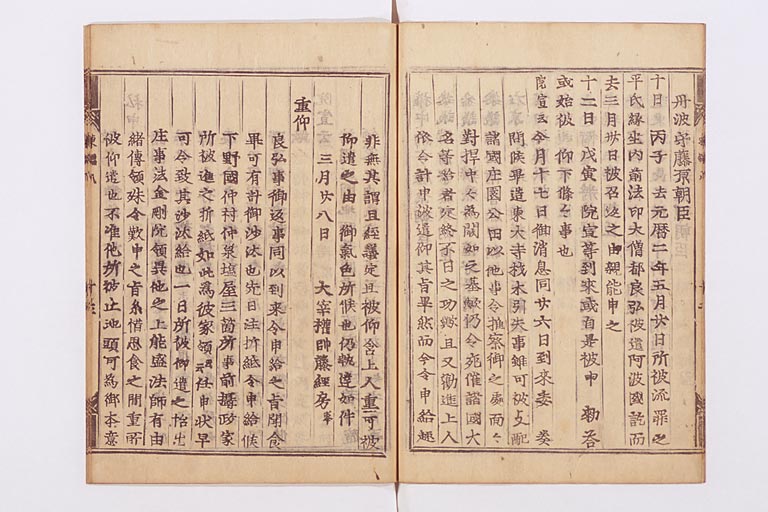 丹波守藤原朝臣
十日 丙子 去元暦二年五月廿日所被流罪之
平氏縁坐内前法印大僧都良弘被遣阿波國訖而
去三月廿日被召返之由親能申之
十二日 戊寅 院宣等到來或者是被申 勅答
或始被 仰下條々事也
院宣云今月十七日御消息同廿六日到來委 奏
聞候畢造東大寺材木引夫事雖可被支配
諸國庄園公田以他事令推察御之處而々
對捍中々為闕如之基歟仍令宛催諸國大
名等給者定終不日之功歟且又勸進上人
依令計申被遣仰其旨畢然而令申給趣
非無其謂且經議定且被仰含上人重可被
仰遣之由 御氣色所候也仍執達如件
三月廿八日 大宰權帥藤經房奉
重仰
良弘事御返事同以到來令申給之旨聞食
畢可有計御沙汰也先日注折紙令申給候
下野國仲村仲泉塩屋三箇所事前攝政家
所被進之折紙如此為彼家領云云任申状早
可令致其沙汰給也一日所被仰遣之
庄事法金剛院領異他之上能盛法師有由
緒傳領殊令歎申之旨糸惜思食之間重所
被仰遣也不准他所被止地頭可為御本意